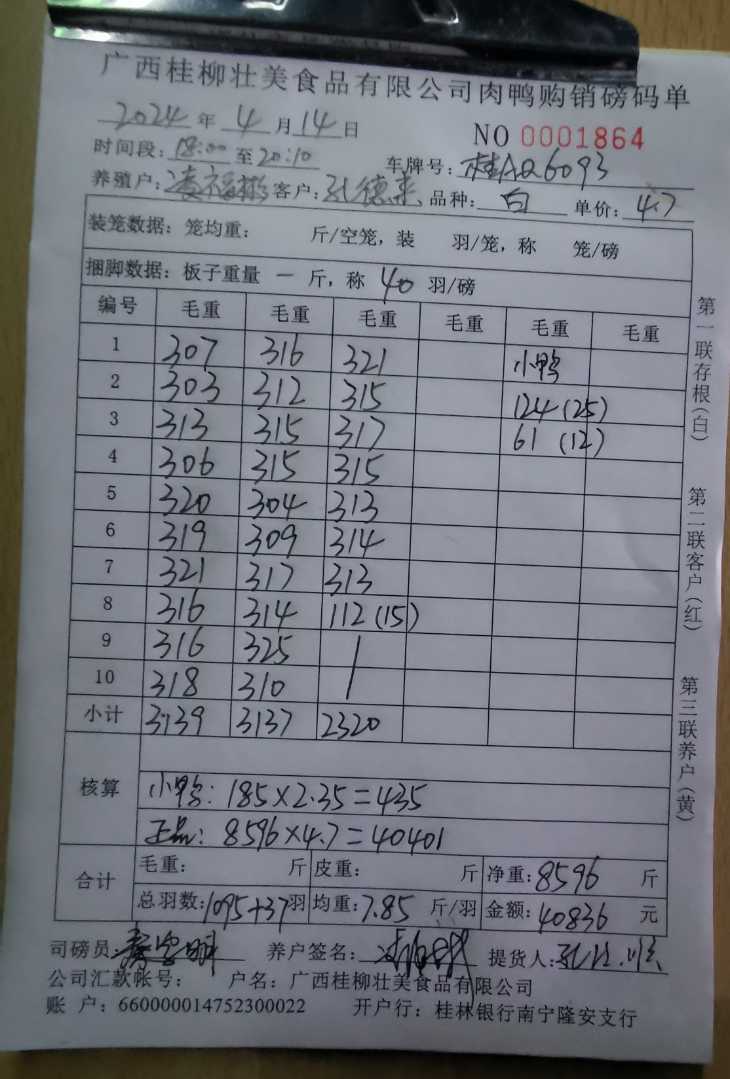 广西桂柳壮美食品有限公司肉鸭购销磅码单
2024 年 4 月 14 日 NO 0001864
时间段: 18:00 至 20:10 车牌号: 桂AQ6093
养殖户: 凌福彬 客户: 孔德来 品种: 白 单价: 4.7
装笼数据: 笼均重: 斤/空笼, 装 羽/笼, 称 笼/磅
捆脚数据: 板子重量 一 斤, 称 40 羽/磅
编号 毛重 毛重 毛重 毛重 毛重 毛重
1 307 316 321 小鸭
2 303 312 315 124(25)
3 313 315 317 61 (12)
4 306 315 315
5 320 304 313
6 319 309 314
7 321 317 313
8 316 314 112 (15)
9 316 325 /
10 318 310
小计 3139 3137 2320
核算
小鸭: 185×2.35=435
正品: 8596×4.7=40401
合计 毛重: 斤 皮重: 斤 净重: 8596 斤
总羽数: 1095+37 羽 均重: 7.85 斤/羽 金额: 40836 元
司磅员: 养户签名: 提货人:
公司汇款帐号: 户名: 广西桂柳壮美食品有限公司
账 户: 660000014752300022 开户行: 桂林银行南宁隆安支行
第一联存根(白)
第二联客户(红)
第三联养户(黄)